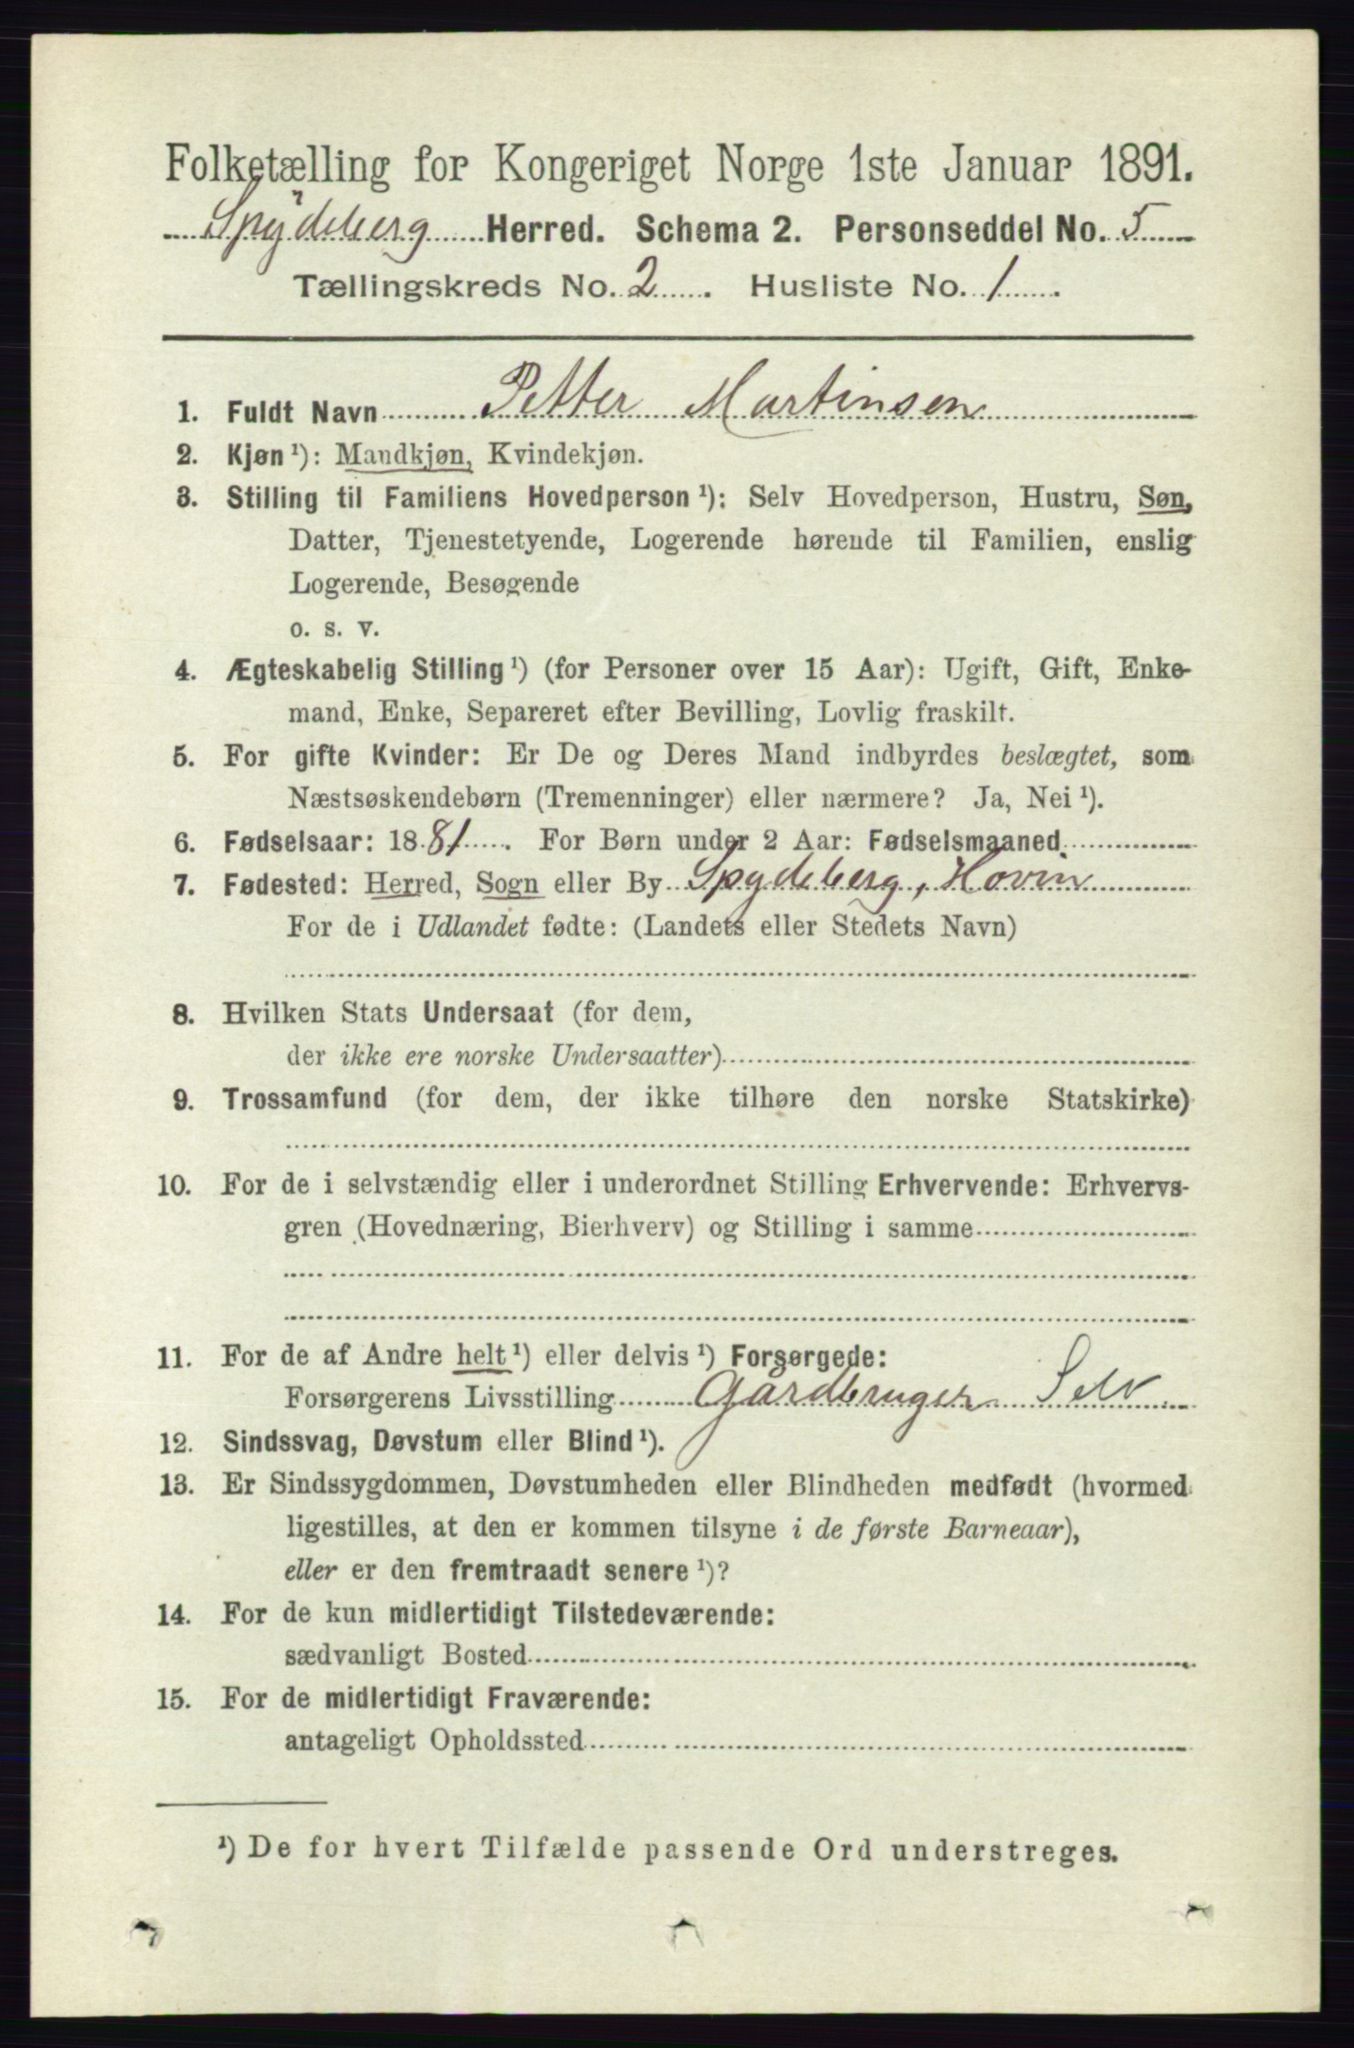 Folketælling for Kongeriget Norge 1ste Januar 1891.
Spydeberg Herred. Schema 2. Personseddel No. 5
Tællingskreds No. 2. Husliste No. 1.
1. Fuldt Navn Petter Martinsen
2. Kjøn¹): Mandkjøn, Kvindekjøn.
3. Stilling til Familiens Hovedperson¹): Selv Hovedperson, Hustru, Søn,
Datter, Tjenestetyende, Logerende hørende til Familien, enslig
Logerende, Besøgende
o. s. v.
4. Ægteskabelig Stilling¹) (for Personer over 15 Aar): Ugift, Gift, Enke-
mand, Enke, Separeret efter Bevilling, Lovlig fraskilt.
5. For gifte Kvinder: Er De og Deres Mand indbyrdes beslægtet, som
Næstsøskendebørn (Tremenninger) eller nærmere? Ja, Nei¹).
6. Fødselsaar: 1881. For Børn under 2 Aar: Fødselsmaaned
7. Fødested: Herred, Sogn eller By Spydeberg, Hovin
For de i Udlandet fødte: (Landets eller Stedets Navn)
8. Hvilken Stats Undersaat (for dem,
der ikke ere norske Undersaatter)
9. Trossamfund (for dem, der ikke tilhøre den norske Statskirke)
10. For de i selvstændig eller i underordnet Stilling Erhvervende: Erhvervs-
gren (Hovednæring, Bierhverv) og Stilling i samme
11. For de af Andre helt¹) eller delvis¹) Forsørgede:
Forsørgerens Livsstilling Gårdbruger Selv
12. Sindssvag, Døvstum eller Blind¹).
13. Er Sindssygdommen, Døvstumheden eller Blindheden medfødt (hvormed
ligestilles, at den er kommen tilsyne i de første Barneaar),
eller er den fremtraadt senere¹)?
14. For de kun midlertidigt Tilstedeværende:
sædvanligt Bosted
15. For de midlertidigt Fraværende:
antageligt Opholdssted
¹) De for hvert Tilfælde passende Ord understreges.